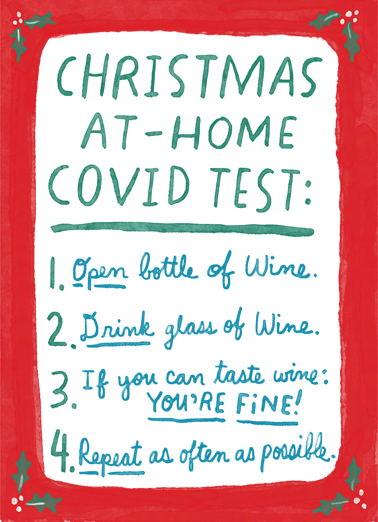 CHRISTMAS
AT-HOME
COVID TEST:
1. Open bottle of Wine.
2. Drink glass of Wine.
3. If you can taste wine:
YOU'RE FiNE!
4. Repeat as often as possible.